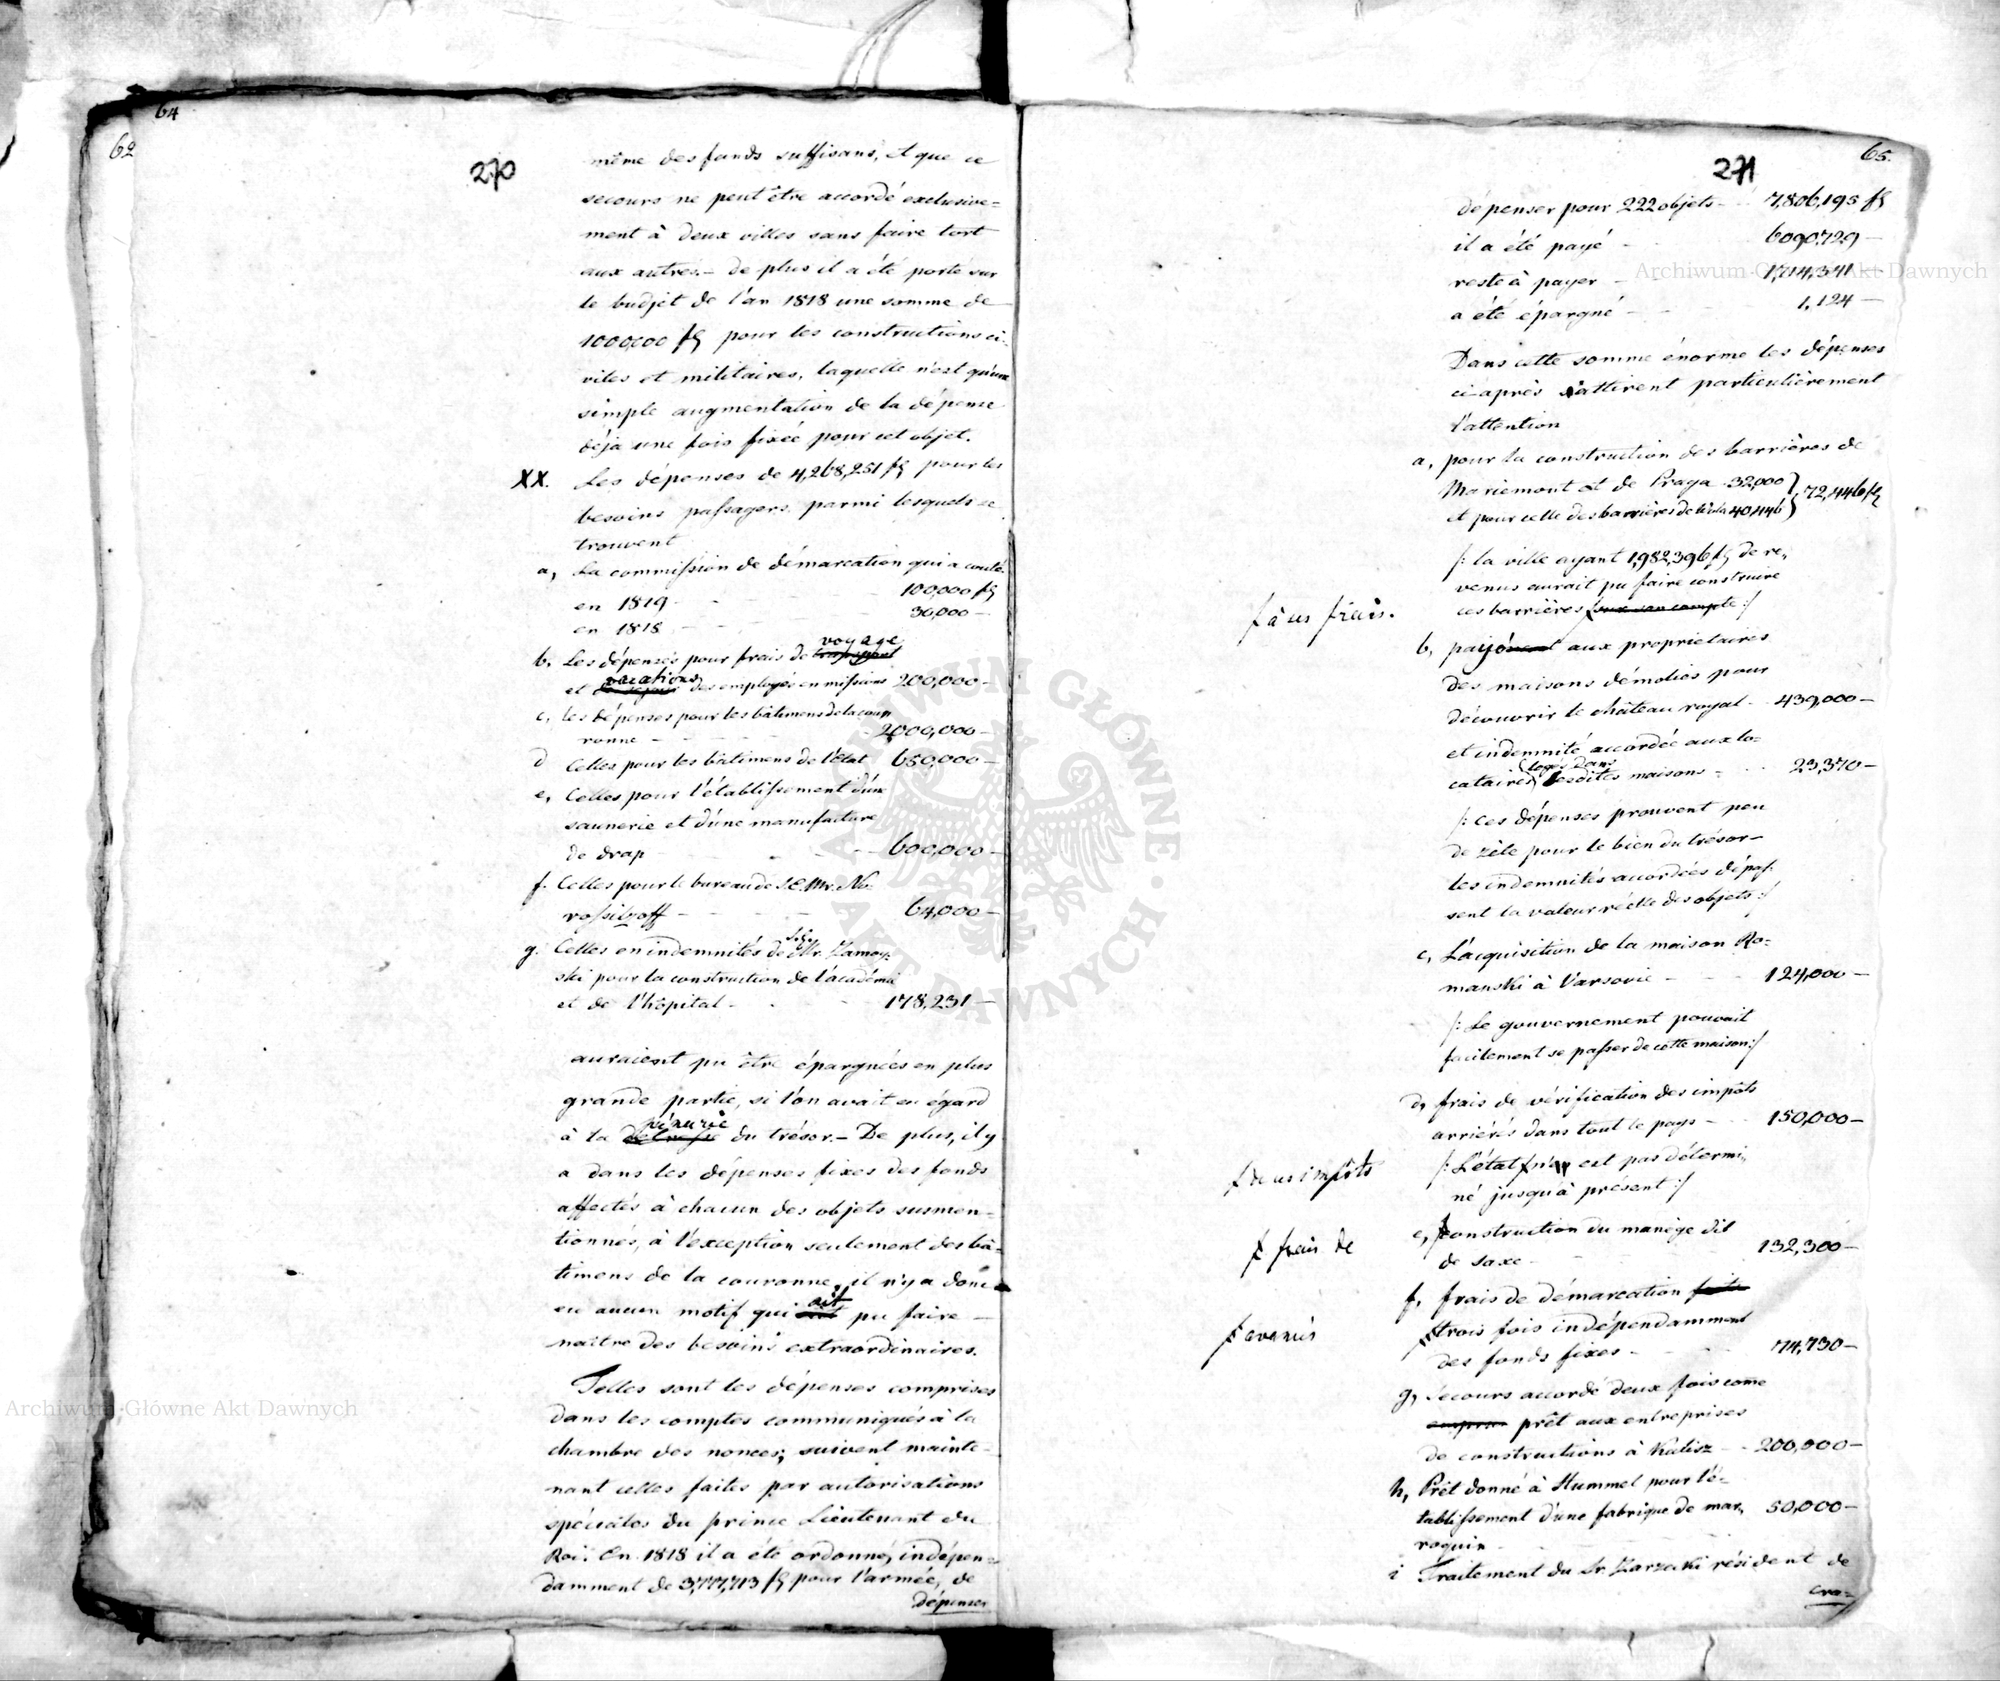 64
62
270
même des fonds suffisans, et que ce
secours ne peut être accordé exclusive=
ment à deux villes sans faire tort
aux autres.- de plus il a été porté sur
le budjet de l'an 1818 une somme de
1000,000 fl pour les constructions ci-
viles et militaires, laquelle n'est qu'une
simple augmentation de la dépense
déja une fois fixée pour cet objet.
XX. Les dépenses de 4,268,251 fl pour les
besoins passagers parmi lesquels se
trouvent
a, La commission de démarcation qui a couté
en 1819 - 100,000 fl
en 1818 - 30,000 -
voyage
b, Les dépenses pour frais de transport
vacations
et de séjour des employés en missions 200,000-
c, les dépenses pour les bâtimens de la cou
ronne - 2000,000-
d Celles pour les bâtimens de l'état 650,000-
e, Celles pour l'établissement d'une
saunerie et d'une manufacture
de drap - 600,000-
f. Celles pour le bureau de S.E. Mr. No-
vossilzoff - 64,000-
g. Celles en indemnités de Mr. Zamoy-
ski pour la construction de l'académie
et de l'hôpital - 178,231-
auraient pu être épargnées en plus
grande partie, si l'on avait eu égard
pénurie
à la détresse du trésor.- De plus, il y
a dans les dépenses fixes des fonds
affectés à chacun des objets susmen-
tionnés, à l'exception seulement des bâ-
timens de la couronne, il n'y a donc
ait
eu aucun motif qui pu faire -
naitre des besoins extraordinaires.
Telles sont les dépenses comprises
dans les comptes communiqués à la
chambre des nonces; suivent mainte-
nant celles faites par autorisations
spéciales du prince Lieutenant du
Roi. En 1818 il a été ordonné, indépen-
damment de 3,777,713 fl pour l'armée, de
dépenser
65.
271
dépenser pour 222 objets - 7,806,195 fl
il a été payé - 6090,729 -
reste à payer - 1,714,341 -
a été épargné - 1,124 -
Dans cette somme énorme les dépenses
ci-après attirent particulièrement
l'attention
a, pour la construction des barrières de
Mariemont et de Praga 32,000 } 72,446 fl
et pour celle des barrières de Wola 40,446
/: la ville ayant 1,982,396 fl de re-
venus aurait pu faire construire
ces barrières sur son compte :/
f à ses frais.
b, payé aux propriétaires
des maisons démolies pour
découvrir le château royal - 439,000-
et indemnité accordée aux lo-
logés dans
cataires lesdites maisons - 23,370-
/: ces dépenses prouvent peu
de zèle pour le bien du trésor-
les indemnités accordées dépas-
sent la valeur réelle des objets :/
c, L'acquisition de la maison Ro-
manski à Varsovie - 124,000-
/: Le gouvernement pouvait
facilement se passer de cette maison :/
d, frais de vérification des impôts
arriérés dans tout le pays - 150,000-
/: L'état n'en est pas détermi-
né jusqu'à présent :/
f de ces impôts
e, construction du manège dit
de saxe - 132,300-
f frais de
f, frais de démarcation faite
trois fois indépendamment
f avancés
des fonds fixes - 74,730-
g, Secours accordé deux fois come
prêt aux entreprises
de constructions à Kalisz - 200,000-
h, Prêt donné à Hummel pour l'é-
tablissement d'une fabrique de mar- 50,000-
roquin
i Traitement du Sr. Zarzecki résident de
cra-
Archiwum Główne Akt Dawnych
Archiwum Główne Akt Dawnych
ARCHIWUM GŁÓWNE · AKT DAWNYCH ·